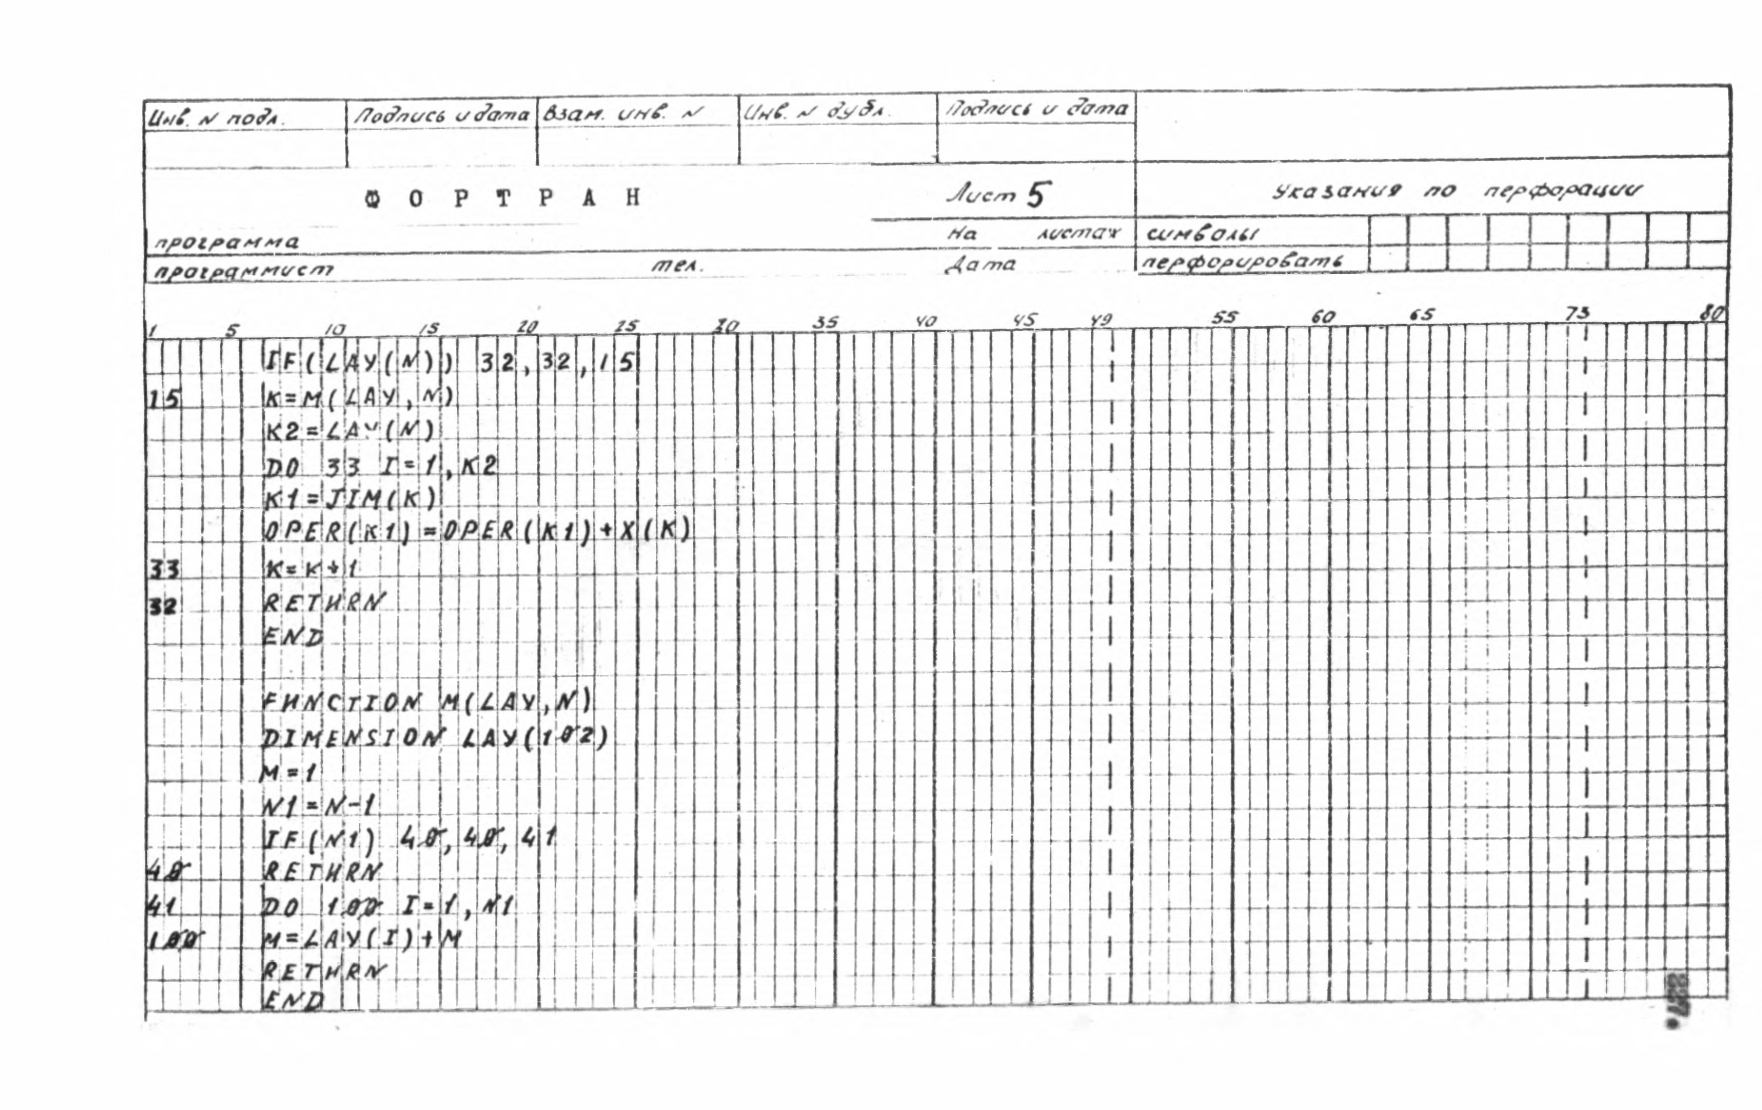 Инв. N подл. Подпись и дата Взам. инв. N Инв. N дубл. Подпись и дата
ФОРТРАН Лист 5 Указания по перфорации
программа на листах символы
программист тел. Дата перфорировать
1 5 10 15 20 25 30 35 40 45 49 55 60 65 73 80
IF(LAY(N)) 32,32,15
15 K=M(LAY,N)
K2=LAY(N)
DO 33 I=1,K2
K1=JIM(K)
OPER(K1)=OPER(K1)+X(K)
33 K=K+1
32 RETURN
END
FUNCTION M(LAY,N)
DIMENSION LAY(102)
M=1
N1=N-1
IF(N1) 40,40,41
40 RETURN
41 DO 100 I=1,N1
100 M=LAY(I)+M
RETURN
END
227.